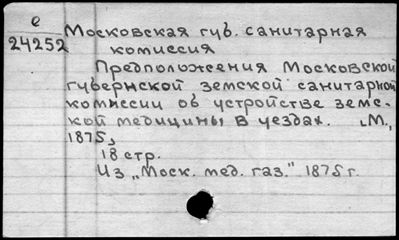 е
24252
Московская губ. санитарная
комиссия
Предположения Московской
губернской земской санитарной
комиссии об устройстве земс-
кой медицины в уездах. М.,
1875,
18 стр.
Из „Моск. мед. газ." 1875 г.